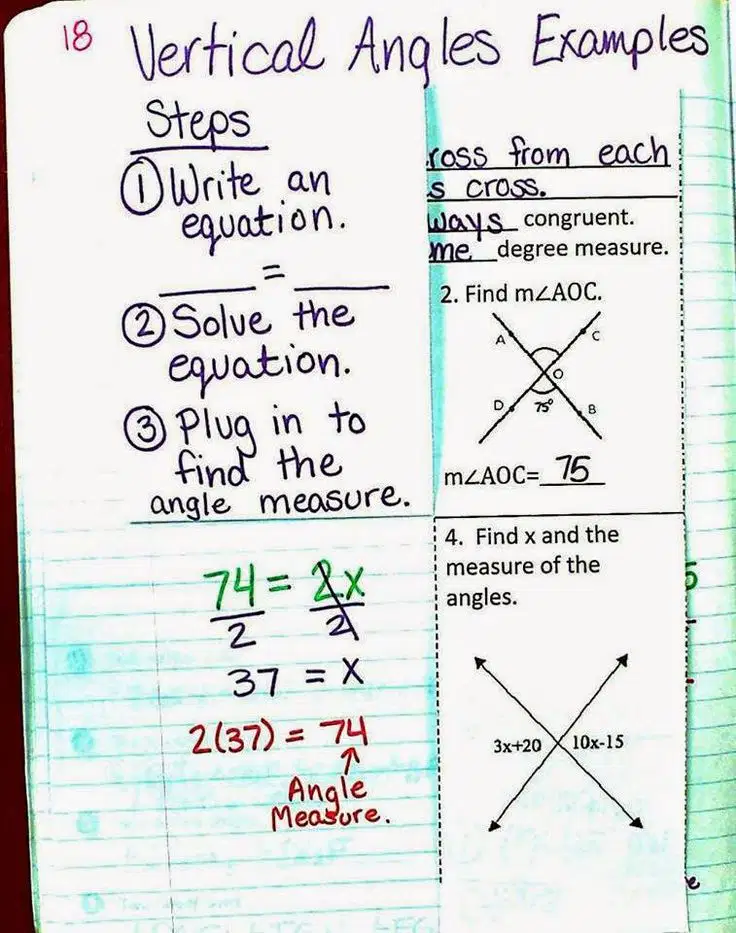 18
Vertical Angles Examples
Steps
① Write an
equation.
____ = ____
② Solve the
equation.
③ Plug in to
find the
angle measure.
ross from each
s cross.
ways congruent.
me degree measure.
2. Find m∠AOC.
A
C
O
D
75°
B
m∠AOC= 75
74 = 2x
2 2
37 = x
2(37) = 74
↑
Angle
Measure.
4. Find x and the
measure of the
angles.
3x+20
10x-15
5
e